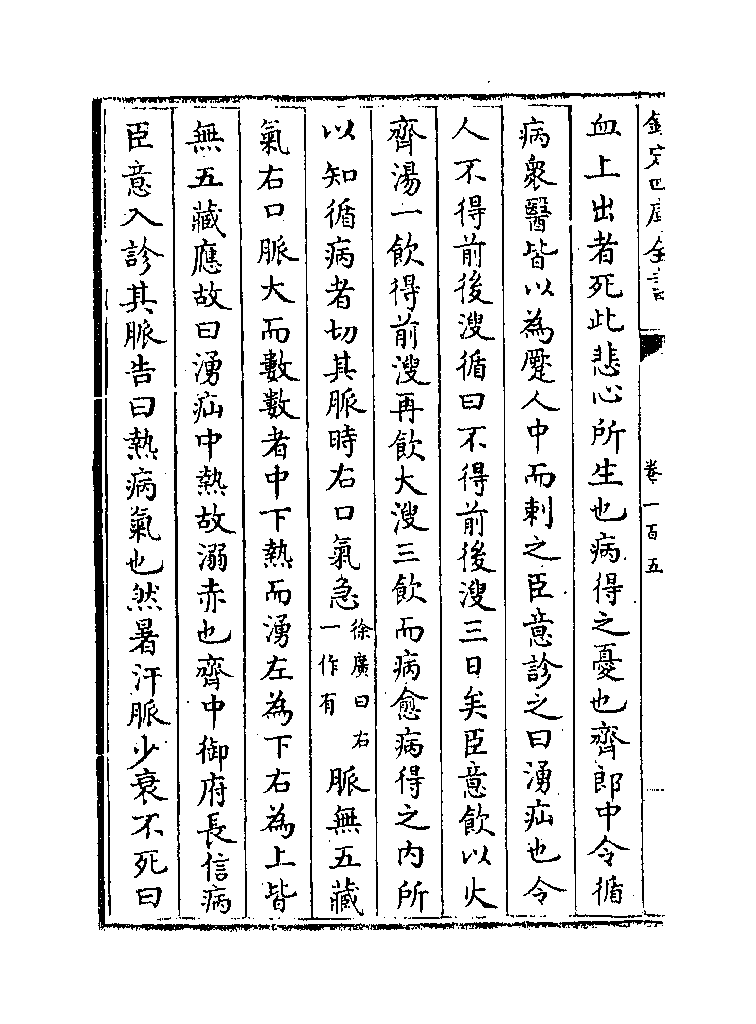 欽定四庫全書
卷一百五
血上出者死此悲心所生也病得之憂也齊郎中令循
病衆醫皆以為蹷人中而刺之臣意診之曰湧疝也令
人不得前後溲循曰不得前後溲三日矣臣意飲以火
齊湯一飲得前溲再飲大溲三飲而病愈病得之内所
以知循病者切其脈時右口氣急徐廣曰右一作有脈無五藏
氣右口脈大而數數者中下熱而湧左為下右為上皆
無五藏應故曰湧疝中熱故溺赤也齊中御府長信病
臣意入診其脈告曰熱病氣也然暑汗脈少衰不死曰